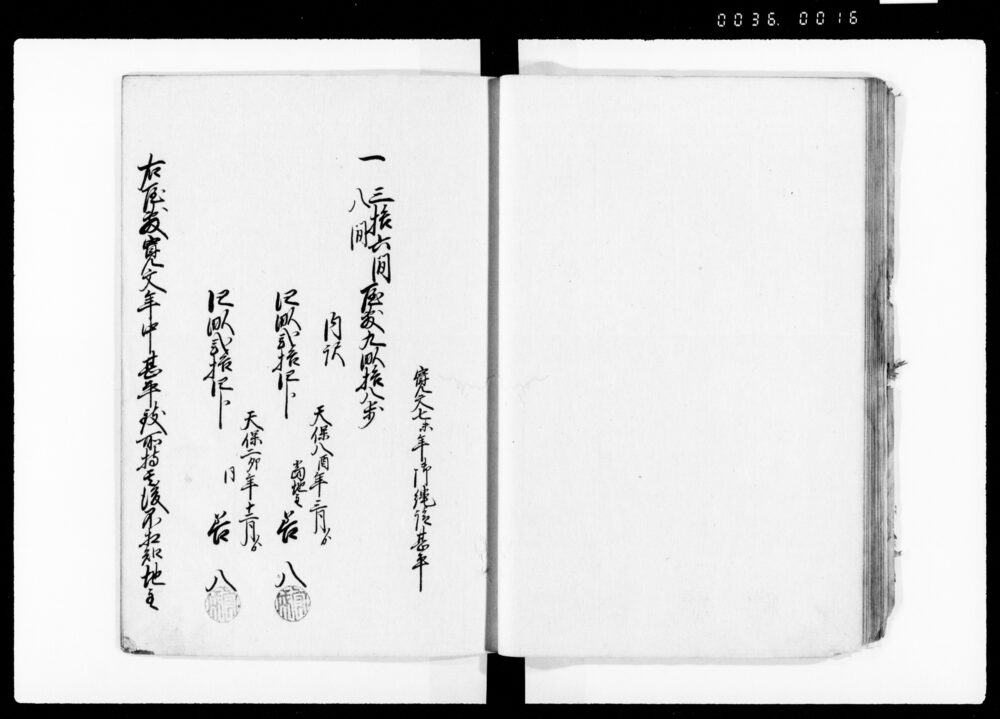 0036. 0016
寛文七未年御縄請甚平
一 三拾六間
八間
屋敷九畝拾八歩
内訳
天保八酉年三月ゟ
当地主
四畝弐拾四歩 善八
天保二卯年十二月ゟ
同
四畝弐拾四歩 善八
右屋敷寛文年中甚平致所持其後不相知地主